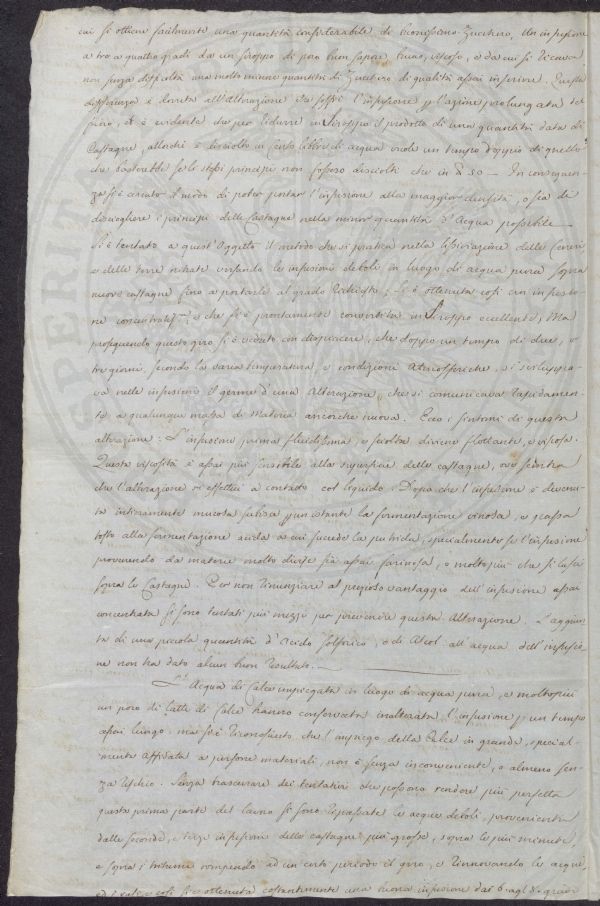 cui si ottiene facilmente una quantità considerabile di buonissimo Zucchero. Un infusione
a tre a quattro gradi dà un siroppo di poco buon sapore, bruno, viscoso, e da cui si ricava
non senza difficoltà una molto minore quantità di Zucchero di qualità assai inferiore. Questa
differenza è dovuta all'alterazione che soffre l'infusione p l'azione prolungata del
fuoco, ed è evidente che per ridurre in Siroppo il prodotto di una quantità data di
Castagne, allorchè è disciolto in cento libbre di acqua vuole un tempo doppio di quello
che basterebbe se li stessi principj non fossero disciolti che in 50 — In conseguen
za si è cercato il modo di poter portar l'infusione alla maggior densità, o sia di
disciogliere i principj delle Castagne nella minor quantità d'Acqua possibile —
Si è tentato a quest'oggetto il metodo che si pratica nella lisciviazione delle Ceneri
e delle terre nitrate versando le infusioni deboli in luogo di acqua pura sopra
nuove castagne fino a portarle al grado richiesto; si è ottenuta così un infusio
ne concentrata, e che si è prontamente convertita in Siroppo eccellente, Ma
proseguendo questo giro si è veduto con dispiacere, che doppo un tempo di due, o
tre giorni, secondo la varia temperatura, e condizioni Atmosferiche, si sviluppa
va nelle infusioni il germe d'una Alterazione, che si comunicava rapidamen
te a qualunque massa di materia ancorchè nuova. Ecco i sintomi di questa
alterazione: L'infusione prima fluidissima, e sciolta diviene flottante, e viscosa.
Questa viscosità è assai più sensibile alla superficie delle castagne, ove sembra
che l'alterazione si effettui a contatto col liquido. Dopo che l'infusione è devenu
ta intieramente mucosa subisce p un istante la fermentazione vinosa, e passa
tosto alla fermentazione acida a cui succede la putrida, specialmente se l'infusione
provenendo da materie molto divise sia assai farinosa, e molto più che si lasci
sopra le Castagne. Per non rinunziare al prezioso vantaggio dell'infusione assai
concentrata si sono tentati più mezzi per prevenire questa Alterazione. L'aggiun
ta di una piccola quantità d'Acido Solforico, o di Alcol all'acqua dell'infusio
ne non ha dato alcun buon resultato. —
L'Acqua di Calce impiegata in luogo di acqua pura, e molto più
un poco di Latte di Calce hanno conservata inalterata l'infusione p un tempo
assai lungo, ma si è riconosciuto che l'impiego della Calce in grande, special
mente affidata a persone materiali, non è senza inconveniente, o almeno sen
za rischio. Senza trascurare dei tentativi che possono rendere più perfetta
questa prima parte del lavoro si sono ripassate le acque deboli, provenienti
dalle seconde, e terze infusioni delle castagne più grosse, sopra le più minute
e sopra i tritumi rompendo ad un certo periodo il giro, e rinnovando le acque